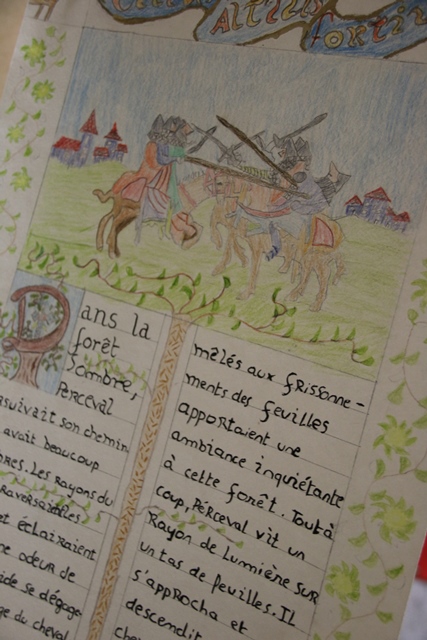 ALTIUS
Dans la
forêt
Sombre,
Perceval
suivait son chemin
avait beaucoup
Les rayons du
et éclairaient
odeur de
se
du cheval
mêlés aux frissonne-
ments des feuilles
apportaient une
ambiance inquiétante
à cette forêt. Tout à
coup, Perceval vit un
Rayon de Lumière SUR
un tas de feuilles. IL
s'approcha et
descendit